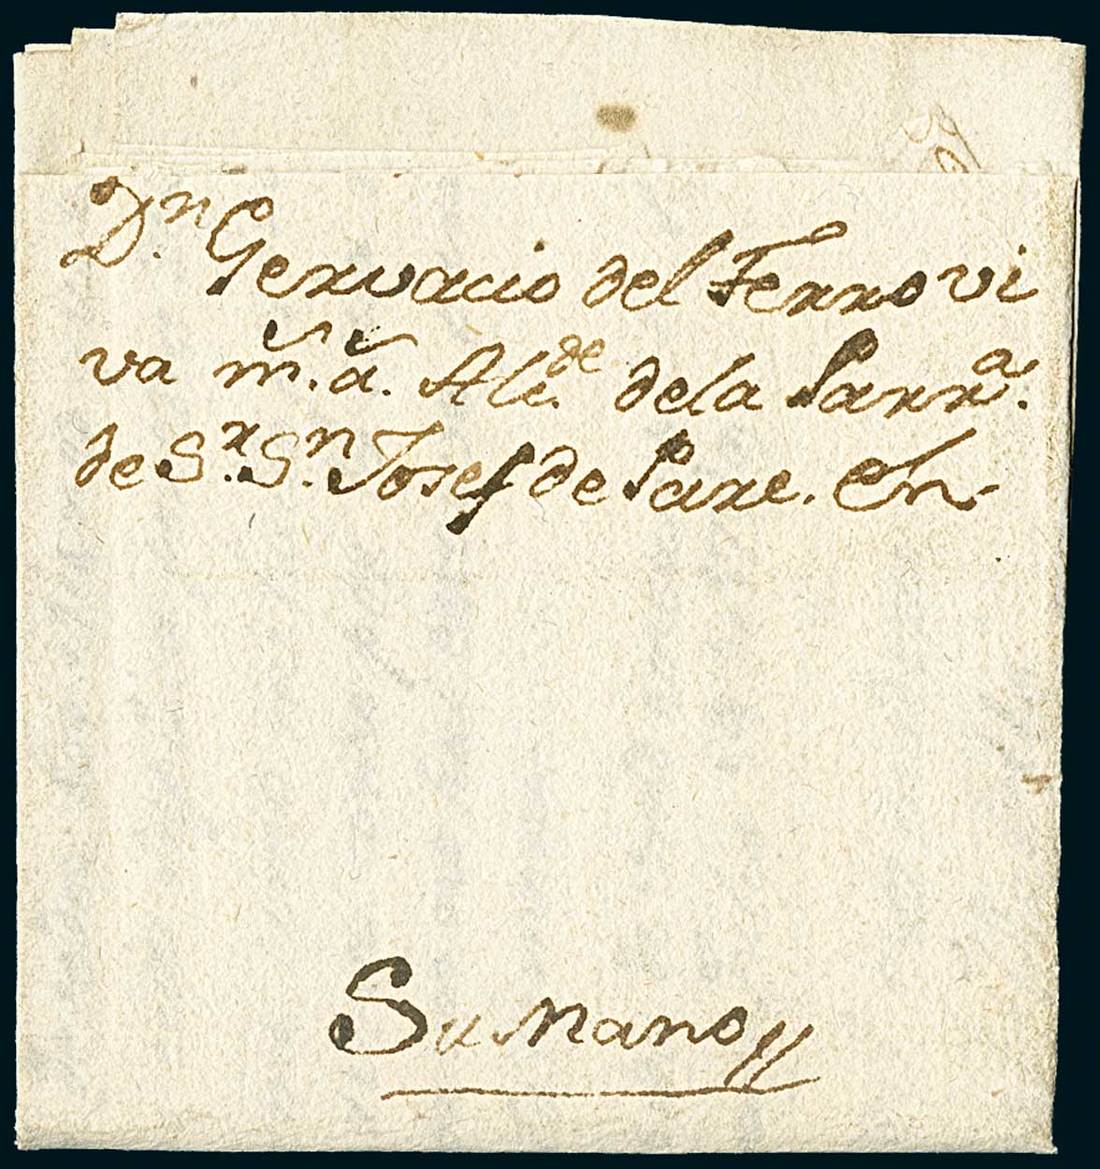 Dn. Gervacio del Ferro vi
va ms. as. Alcde. dela Parra.
de Sr. Sn. Josef de Pare. En
Su Mano//